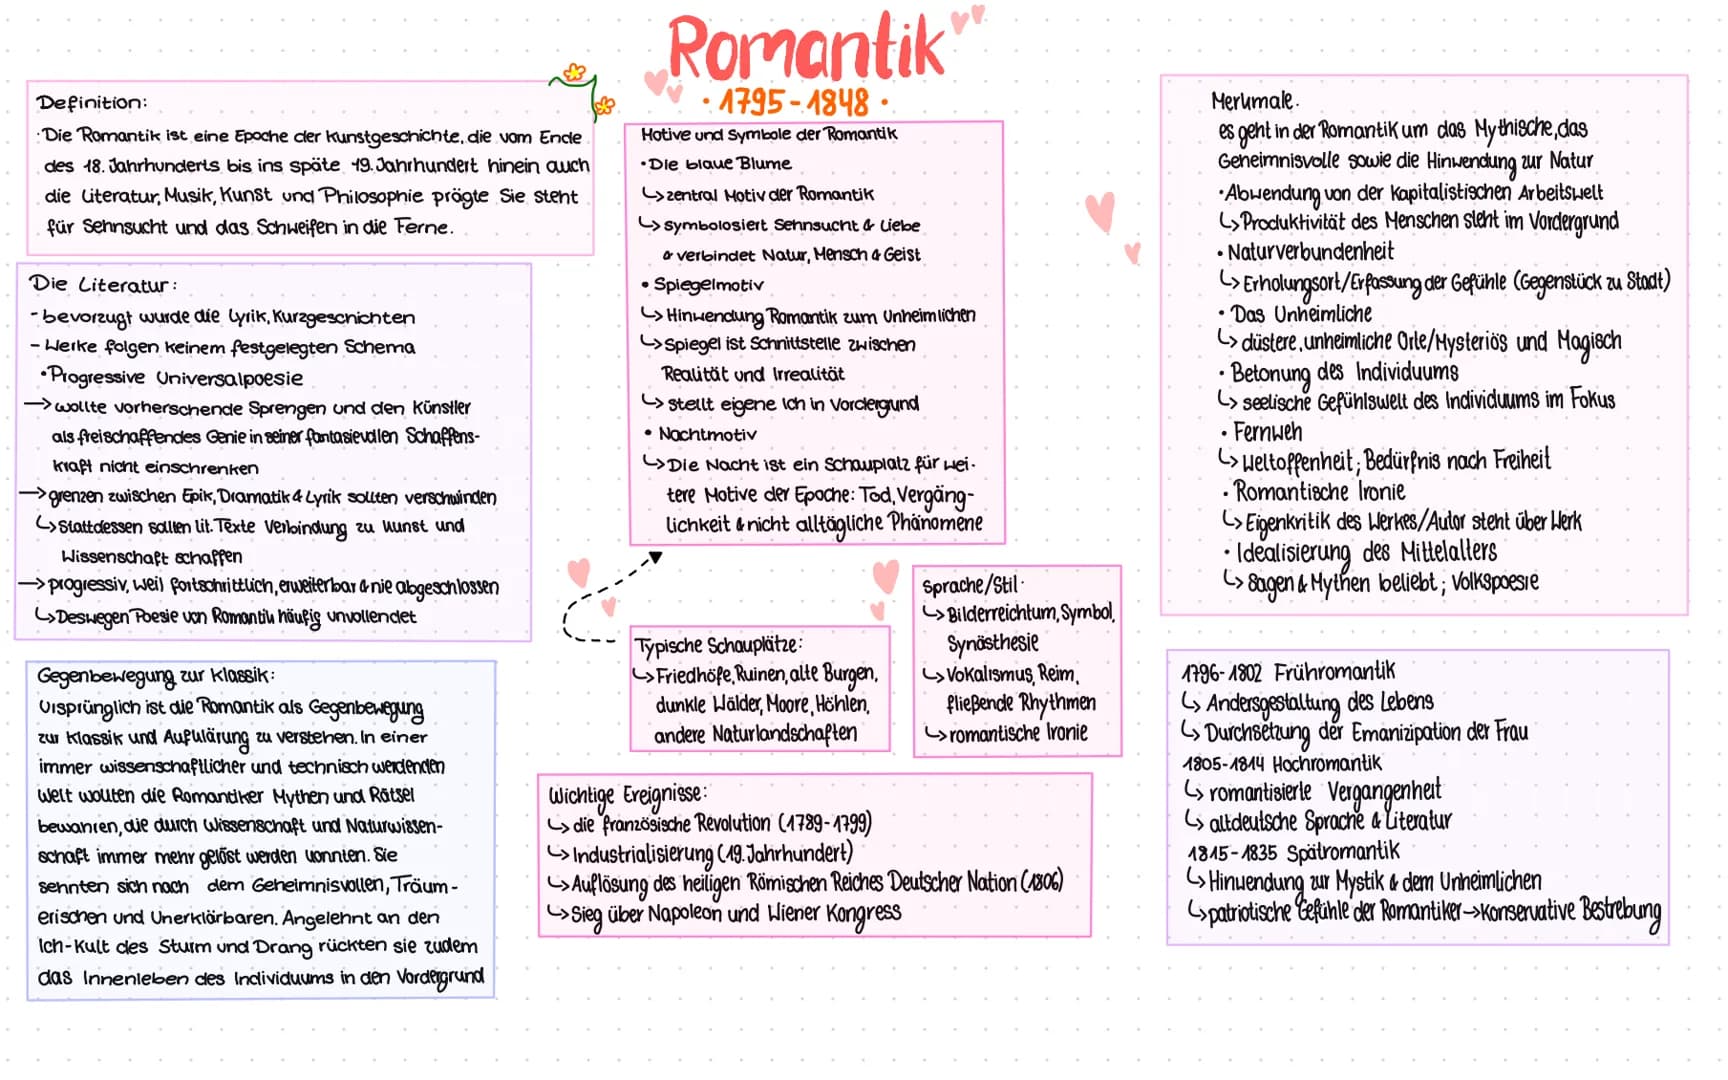 Romantik
· 1795-1848 ·
Definition:
·Die Romantik ist eine Epoche der Kunstgeschichte, die vom Ende
des 18. Jahrhunderts bis ins späte 19. Jahrhundert hinein auch
die Literatur, Musik, Kunst und Philosophie prägte Sie steht
für Sehnsucht und das Schweifen in die Ferne.
Die Literatur:
- bevorzugt wurde die Lyrik, Kurzgeschichten
- Werke folgen keinem festgelegten Schema
•Progressive Universalpoesie
→ wollte vorherschende Sprengen und den Künstler
als freischaffendes Genie in seiner fantasievollen Schaffens-
kraft nicht einschrenken
→ grenzen zwischen Epik, Dramatik & Lyrik sollten verschwinden
↳ Stattdessen sollen lit. Texte Verbindung zu Kunst und
Wissenschaft schaffen
→ progressiv, weil fortschrittlich, erweiterbar & nie abgeschlossen
↳ Deswegen Poesie von Romantik häufig unvollendet
Gegenbewegung zur Klassik:
Ursprünglich ist die Romantik als Gegenbewegung
zur Klassik und Aufklärung zu verstehen. In einer
immer wissenschaftlicher und technisch werdenden
Welt wollten die Romantiker Mythen und Rätsel
bewahren, die durch Wissenschaft und Naturwissen-
schaft immer mehr gelöst werden konnten. Sie
sehnten sich nach dem Geheimnisvollen, Träum-
erischen und Unerklärbaren. Angelehnt an den
Ich-Kult des Sturm und Drang rückten sie zudem
das Innenleben des Individuums in den Vordergrund
Motive und Symbole der Romantik
•Die blaue Blume
↳ zentral Motiv der Romantik
↳ symbolosiert Sehnsucht & Liebe
& verbindet Natur, Mensch & Geist
• Spiegelmotiv
↳ Hinwendung Romantik zum Unheimlichen
↳ Spiegel ist Schnittstelle zwischen
Realität und Irrealität
↳ stellt eigene Ich in Vordergrund
• Nachtmotiv
↳ Die Nacht ist ein Schauplatz für wei-
tere Motive der Epoche: Tod, Vergäng-
lichkeit & nicht alltägliche Phänomene
Typische Schauplätze:
↳ Friedhöfe, Ruinen, alte Burgen,
dunkle Wälder, Moore, Höhlen,
andere Naturlandschaften
Sprache/Stil:
↳ Bilderreichtum, Symbol,
Synästhesie
↳ Vokalismus, Reim,
fließende Rhythmen
↳ romantische Ironie
Wichtige Ereignisse:
↳ die französische Revolution (1789-1799)
↳ Industrialisierung (19. Jahrhundert)
↳ Auflösung des heiligen Römischen Reiches Deutscher Nation (1806)
↳ Sieg über Napoleon und Wiener Kongress
Merkmale.
es geht in der Romantik um das Mythische, das
Geheimnisvolle sowie die Hinwendung zur Natur
•Abwendung von der kapitalistischen Arbeitswelt
↳ Produktivität des Menschen steht im Vordergrund
• Naturverbundenheit
↳ Erholungsort/Erfassung der Gefühle (Gegenstück zu Stadt)
• Das Unheimliche
↳ düstere, unheimliche Orte/Mysteriös und Magisch
• Betonung des Individuums
↳ seelische Gefühlswelt des Individuums im Fokus
• Fernweh
↳ Weltoffenheit; Bedürfnis nach Freiheit
• Romantische Ironie
↳ Eigenkritik des Werkes/Autor steht über Werk
• Idealisierung des Mittelalters
↳ Sagen & Mythen beliebt; Volkspoesie
1796-1802 Frühromantik
↳ Andersgestaltung des Lebens
↳ Durchsetzung der Emanizipation der Frau
1805-1814 Hochromantik
↳ romantisierte Vergangenheit
↳ altdeutsche Sprache & Literatur
1815-1835 Spätromantik
↳ Hinwendung zur Mystik & dem Unheimlichen
↳ patriotische Gefühle der Romantiker → Konservative Bestrebung